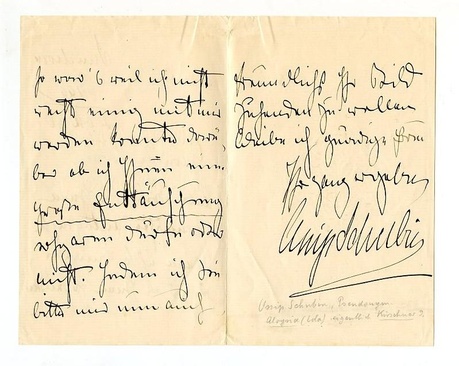 so war's weil ich nicht
recht einig mit mir
werden konnte darü-
ber ob ich Ihnen eine
große Enttäuschung
ersparen dürfe oder
nicht. Indem ich Sie
bitte mir nun auch
freundlichst Ihr Bild
zusenden zu wollen
bleibe ich gnädige Frau
Ihr ganz ergebener
Ossip Schubin
Ossip Schubin, Pseudonym
Aloysia (Lola) eigentlich Kirschner